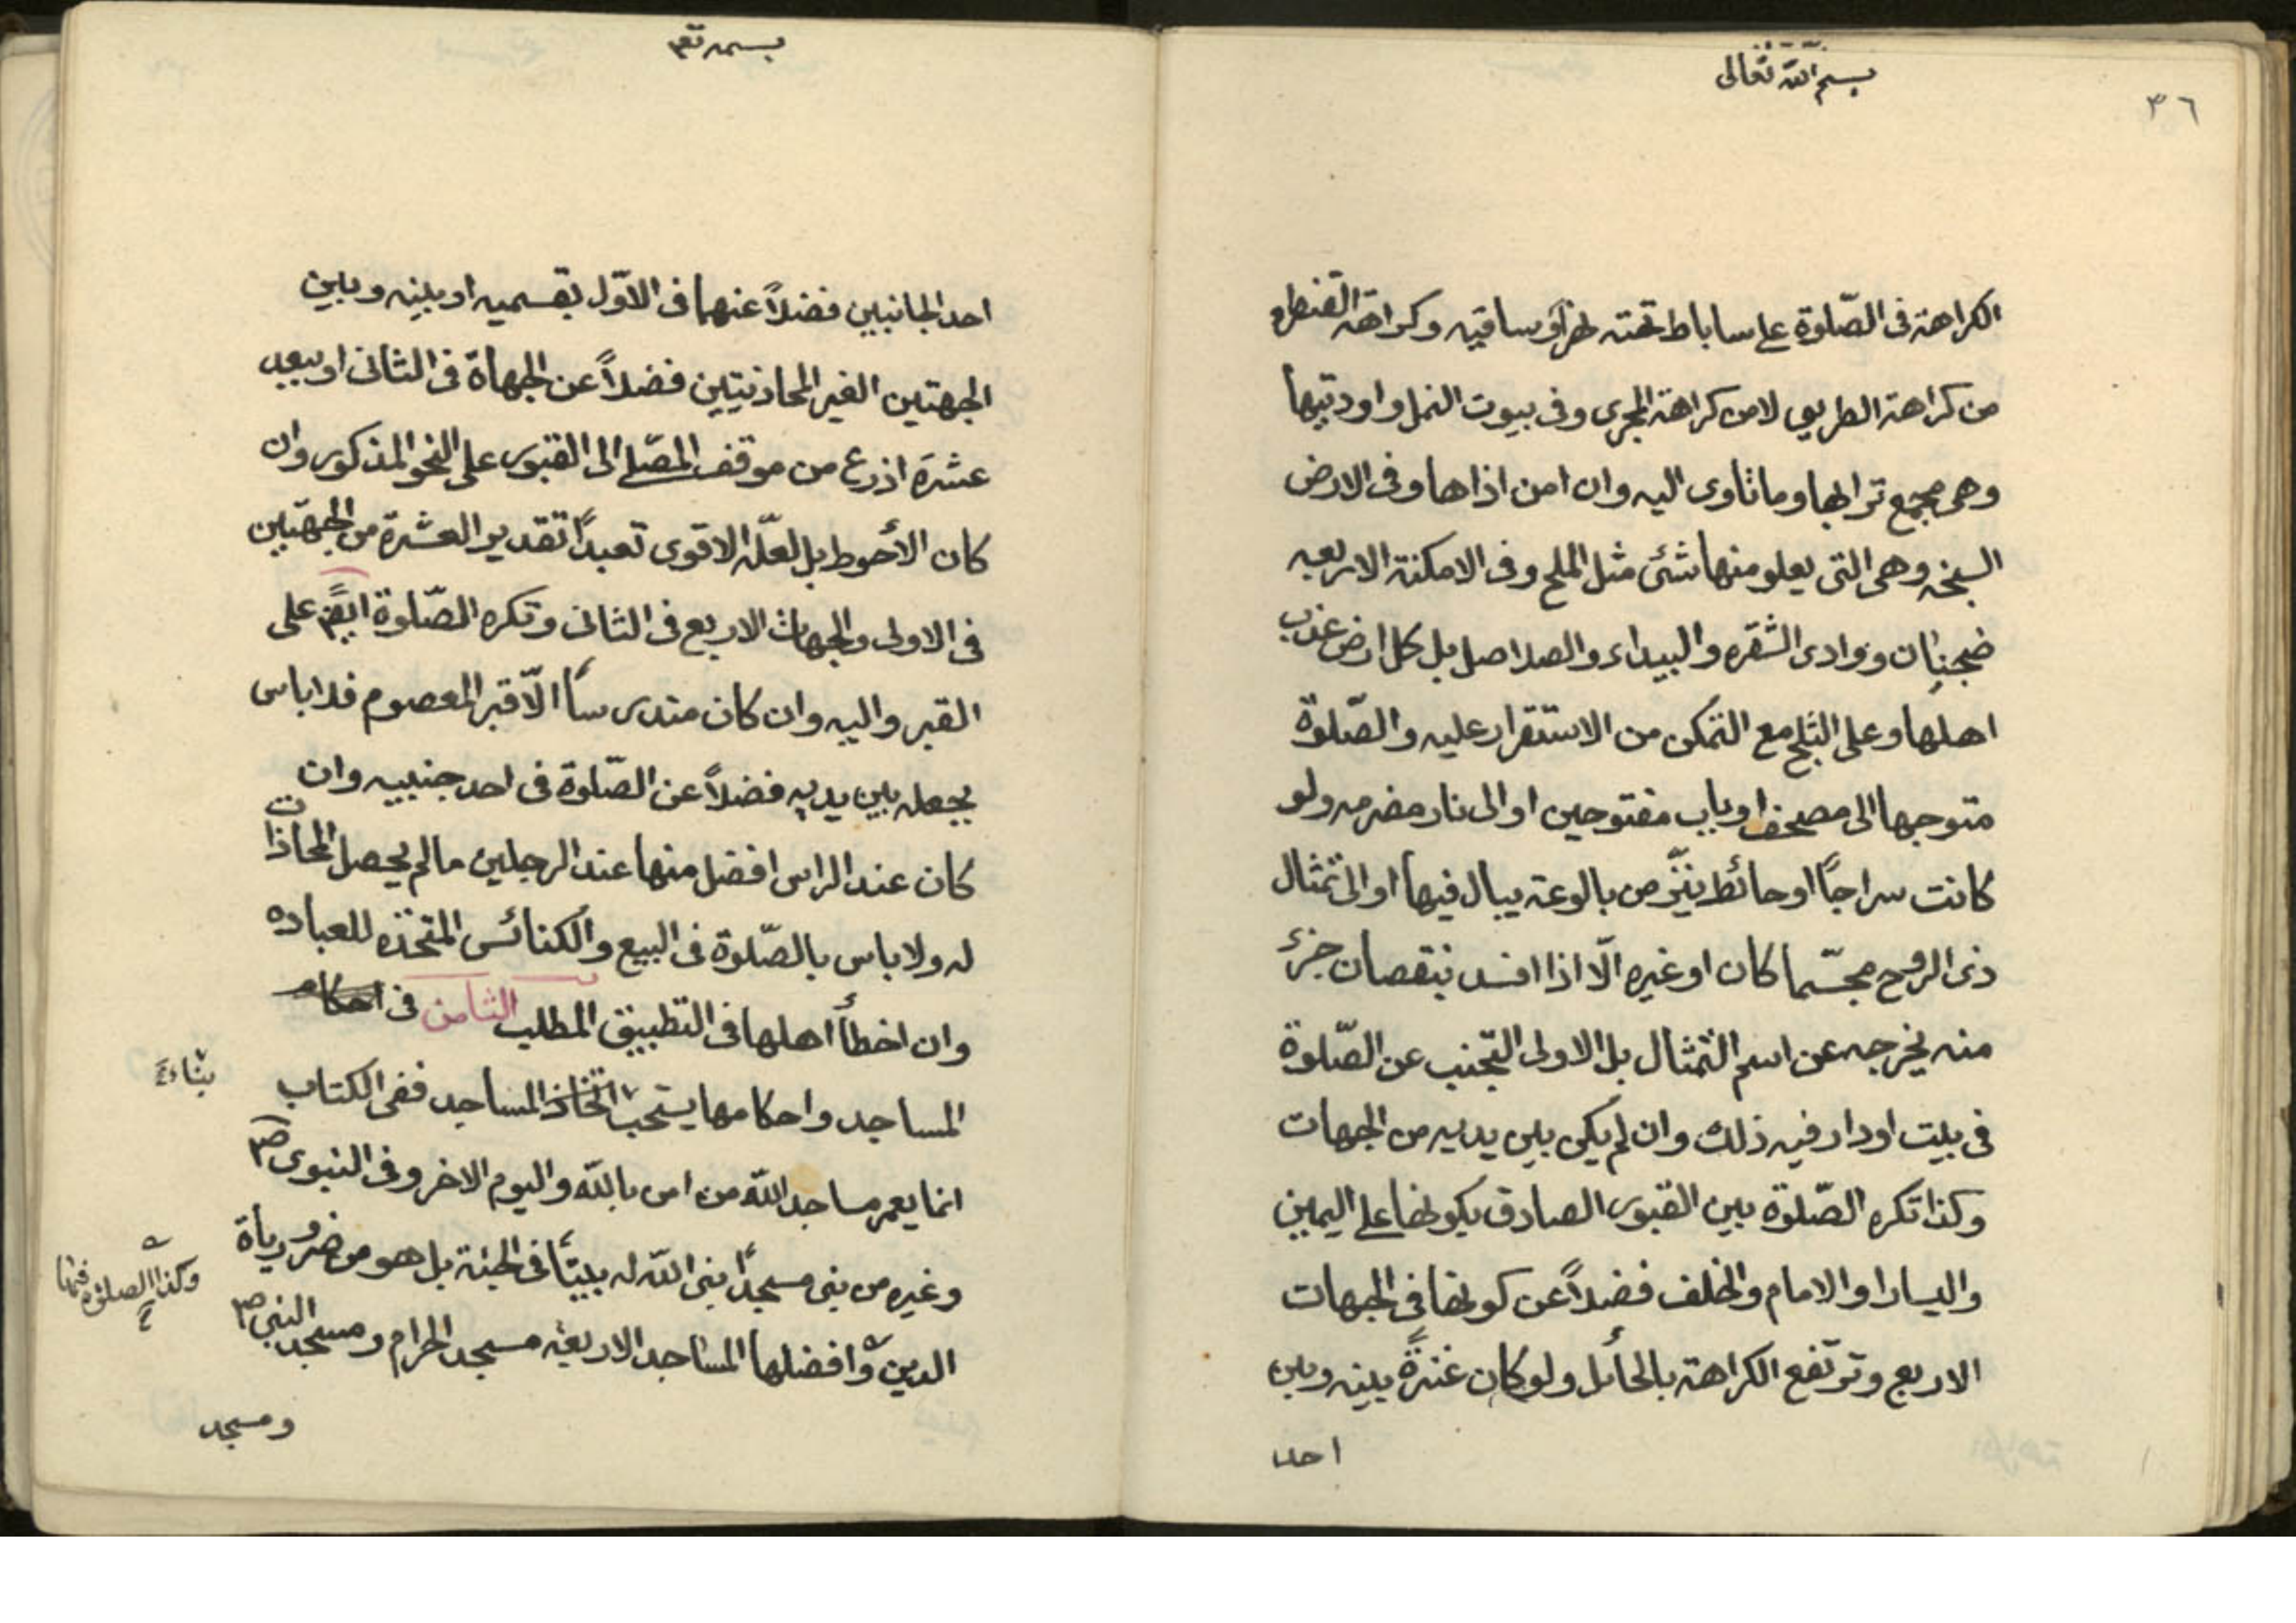 بسم الله تعالى
٣٦
الكراهة فى الصّلوة على ساباط تحته نهر او ساقيه وكراهة القنطره
من كراهة الطريق لا من كراهة المجرى وفى بيوت النمل واوديتها
وهى مجمع ترابها وما تاوى اليه وان امن اذاها وفى الارض
السبخه وهى التى يعلو منها شئ مثل الملح وفى الامكنة الاربعه
ضجنان ووادى الشقره والبيداء والصلاصل بل كل ارض عذب
اهلها وعلى الثلج مع التمكن من الاستقرار عليه والصّلوة
متوجها الى مصحف او باب مفتوحين او الى نار مضرمه ولو
كانت سراجًا او حائط ينزّ من بالوعة يبال فيها او الى تمثال
ذى الروح مجسّما كان او غيره الّا اذا افسد بنقصان جزء
منه يخرجه عن اسم التمثال بل الاولى التجنب عن الصّلوة
فى بيت او دار فيه ذلك وان لم يكن بين يديه من الجهات
وكذا تكره الصّلوة بين القبور الصادق بكونها على اليمين
واليسار او الامام والخلف فضلاً عن كونها فى الجهات
الاربع وترتفع الكراهة بالحائل ولو كان عنزةً بينه وبين
احد
بسمه تعم
احد الجانبين فضلاً عنهما فى الاوّل بقسميه او بينه وبين
الجهتين الغير المحاذيتين فضلاً عن الجهاة فى الثانى او ببعد
عشرة اذرع من موقف المصّلے الى القبور على النحو المذكور وان
كان الأحوط بل لعلّه الاقوى تعبدًا تقدير العشرة من الجهتين
فى الاولى والجهات الاربع فى الثانى وتكره الصّلوة ايضً على
القبر واليه وان كان مندرسًا الّا قبر المعصوم فلا باس
يجعله بين يديه فضلاً عن الصّلوة فى احد جنبيه وان
كان عند الراس افضل منها عند الرجلين ما لم يحصل المحاذات
له ولا باس بالصّلوة فى البيع والكنائس المتخذه للعباده
وان اخطأ اهلها فى التطبيق المطلب الثامن فى احكام
المساجد واحكامها يستحب اتخاذ المساجد ففى الكتاب
بناء
انما يعمر مساجد الله من امن بالله واليوم الاخر وفى النبوى ص
وغيره من بنى مسجدًا بنى الله له بيتًا فى الجنة بل هو من ضروریاة
وكذا الصلوة فيها
الدين وافضلها المساجد الاربعة مسجد الحرام ومسجد النبى ص
ومسجد